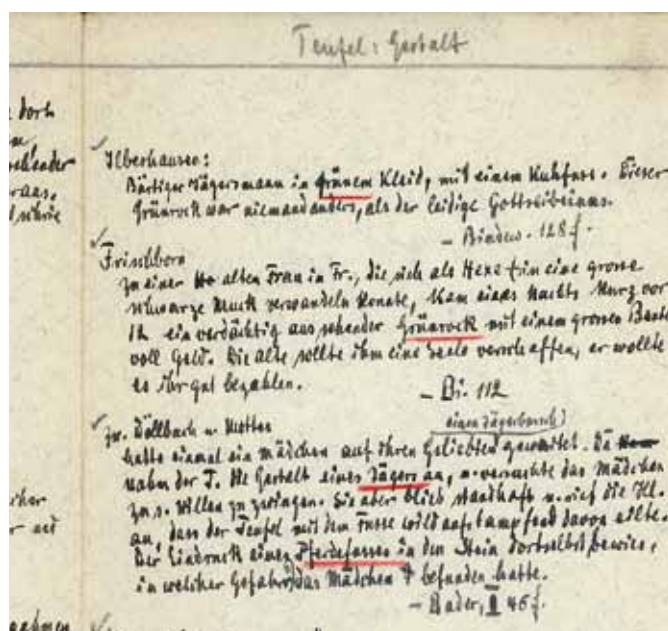 Teufel: Gestalt
Ilberhausen:
Bärtiger Jägersmann in grünem Kleid, mit einem Kuhfuss. Dieser
Grünrock war niemand anders, als der leidige Gottseibeiuns.
- Bindew. 128 f.
Frischborn
Zu einer alten Frau in Fr., die sich als Hexe in eine grosse
schwarze Muck verwandeln konnte, kam eines Nachts kurz vor
12 ein verdächtig aussehender Grünrock mit einem grossen Beutel
voll Geld. Die Alte sollte ihm eine Seele verschaffen, er wollte
es ihr gut bezahlen.
- Bi. 112
zw. Döllbach u. Motten
einen Jägerbursch)
hatte einmal ein Mädchen auf ihren Geliebten gewartet. Da
nahm der T. die Gestalt eines Jägers an, u. versuchte das Mädchen
zu s. Willen zu zwingen. Sie aber blieb standhaft u. rief die Hl.
an, dass der Teufel mit dem Fusse wild aufstampfend davon eilte.
Der Eindruck eines Pferdefusses in den Stein dortselbst bewies,
in welcher Gefahr das Mädchen befunden hatte.
- Bader, II 46 f.
dort